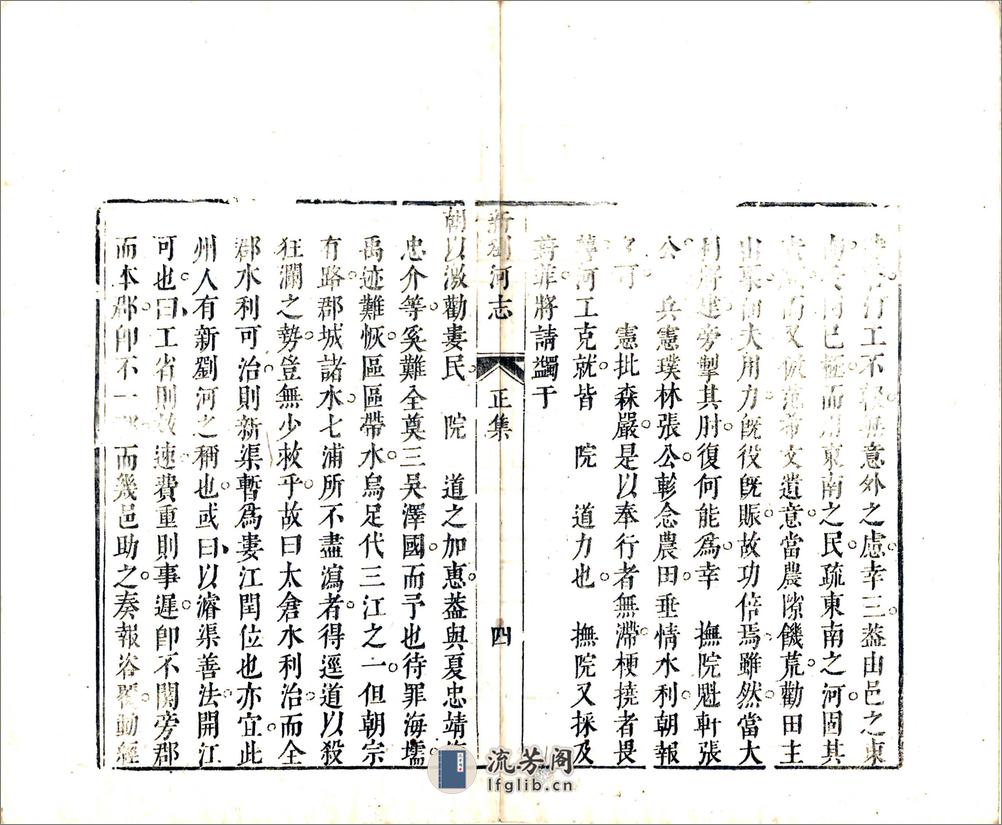 工不
無意外之慮幸三蓋由邑之東
南
而用東南之民疏東南之河固其
又倣范希文遺意當農隙饑荒勸田主
出
佃夫用力旣役旣賑故功倍焉雖然當大
利
旁掣其肘復何能爲幸 撫院魁軒張
公 兵憲璞林張公軫念農田垂情水利朝報
可 憲批森嚴是以奉行者無滯梗撓者畏
河工克就皆 院 道力也 撫院又採及
葑菲將請蠲于
新劉河志 正集 四
朝以激勸婁民 院 道之加惠蓋與夏忠靖
忠介等奚難全奠三吳澤國而予也待罪海壖
禹迹難恢區區帶水烏足代三江之一但朝宗
有路郡城諸水七浦所不盡瀉者得逕道以殺
狂瀾之勢豈無少救乎故曰太倉水利治而全
郡水利可治則新渠暫爲婁江閏位也亦宜此
州人有新劉河之稱也或曰以濬渠善法開江
可也曰工省則效速費重則事遲卽不關旁郡
而本郡卽不一
而幾邑助之奏報咨
動經
流芳阁
lfglib.cn